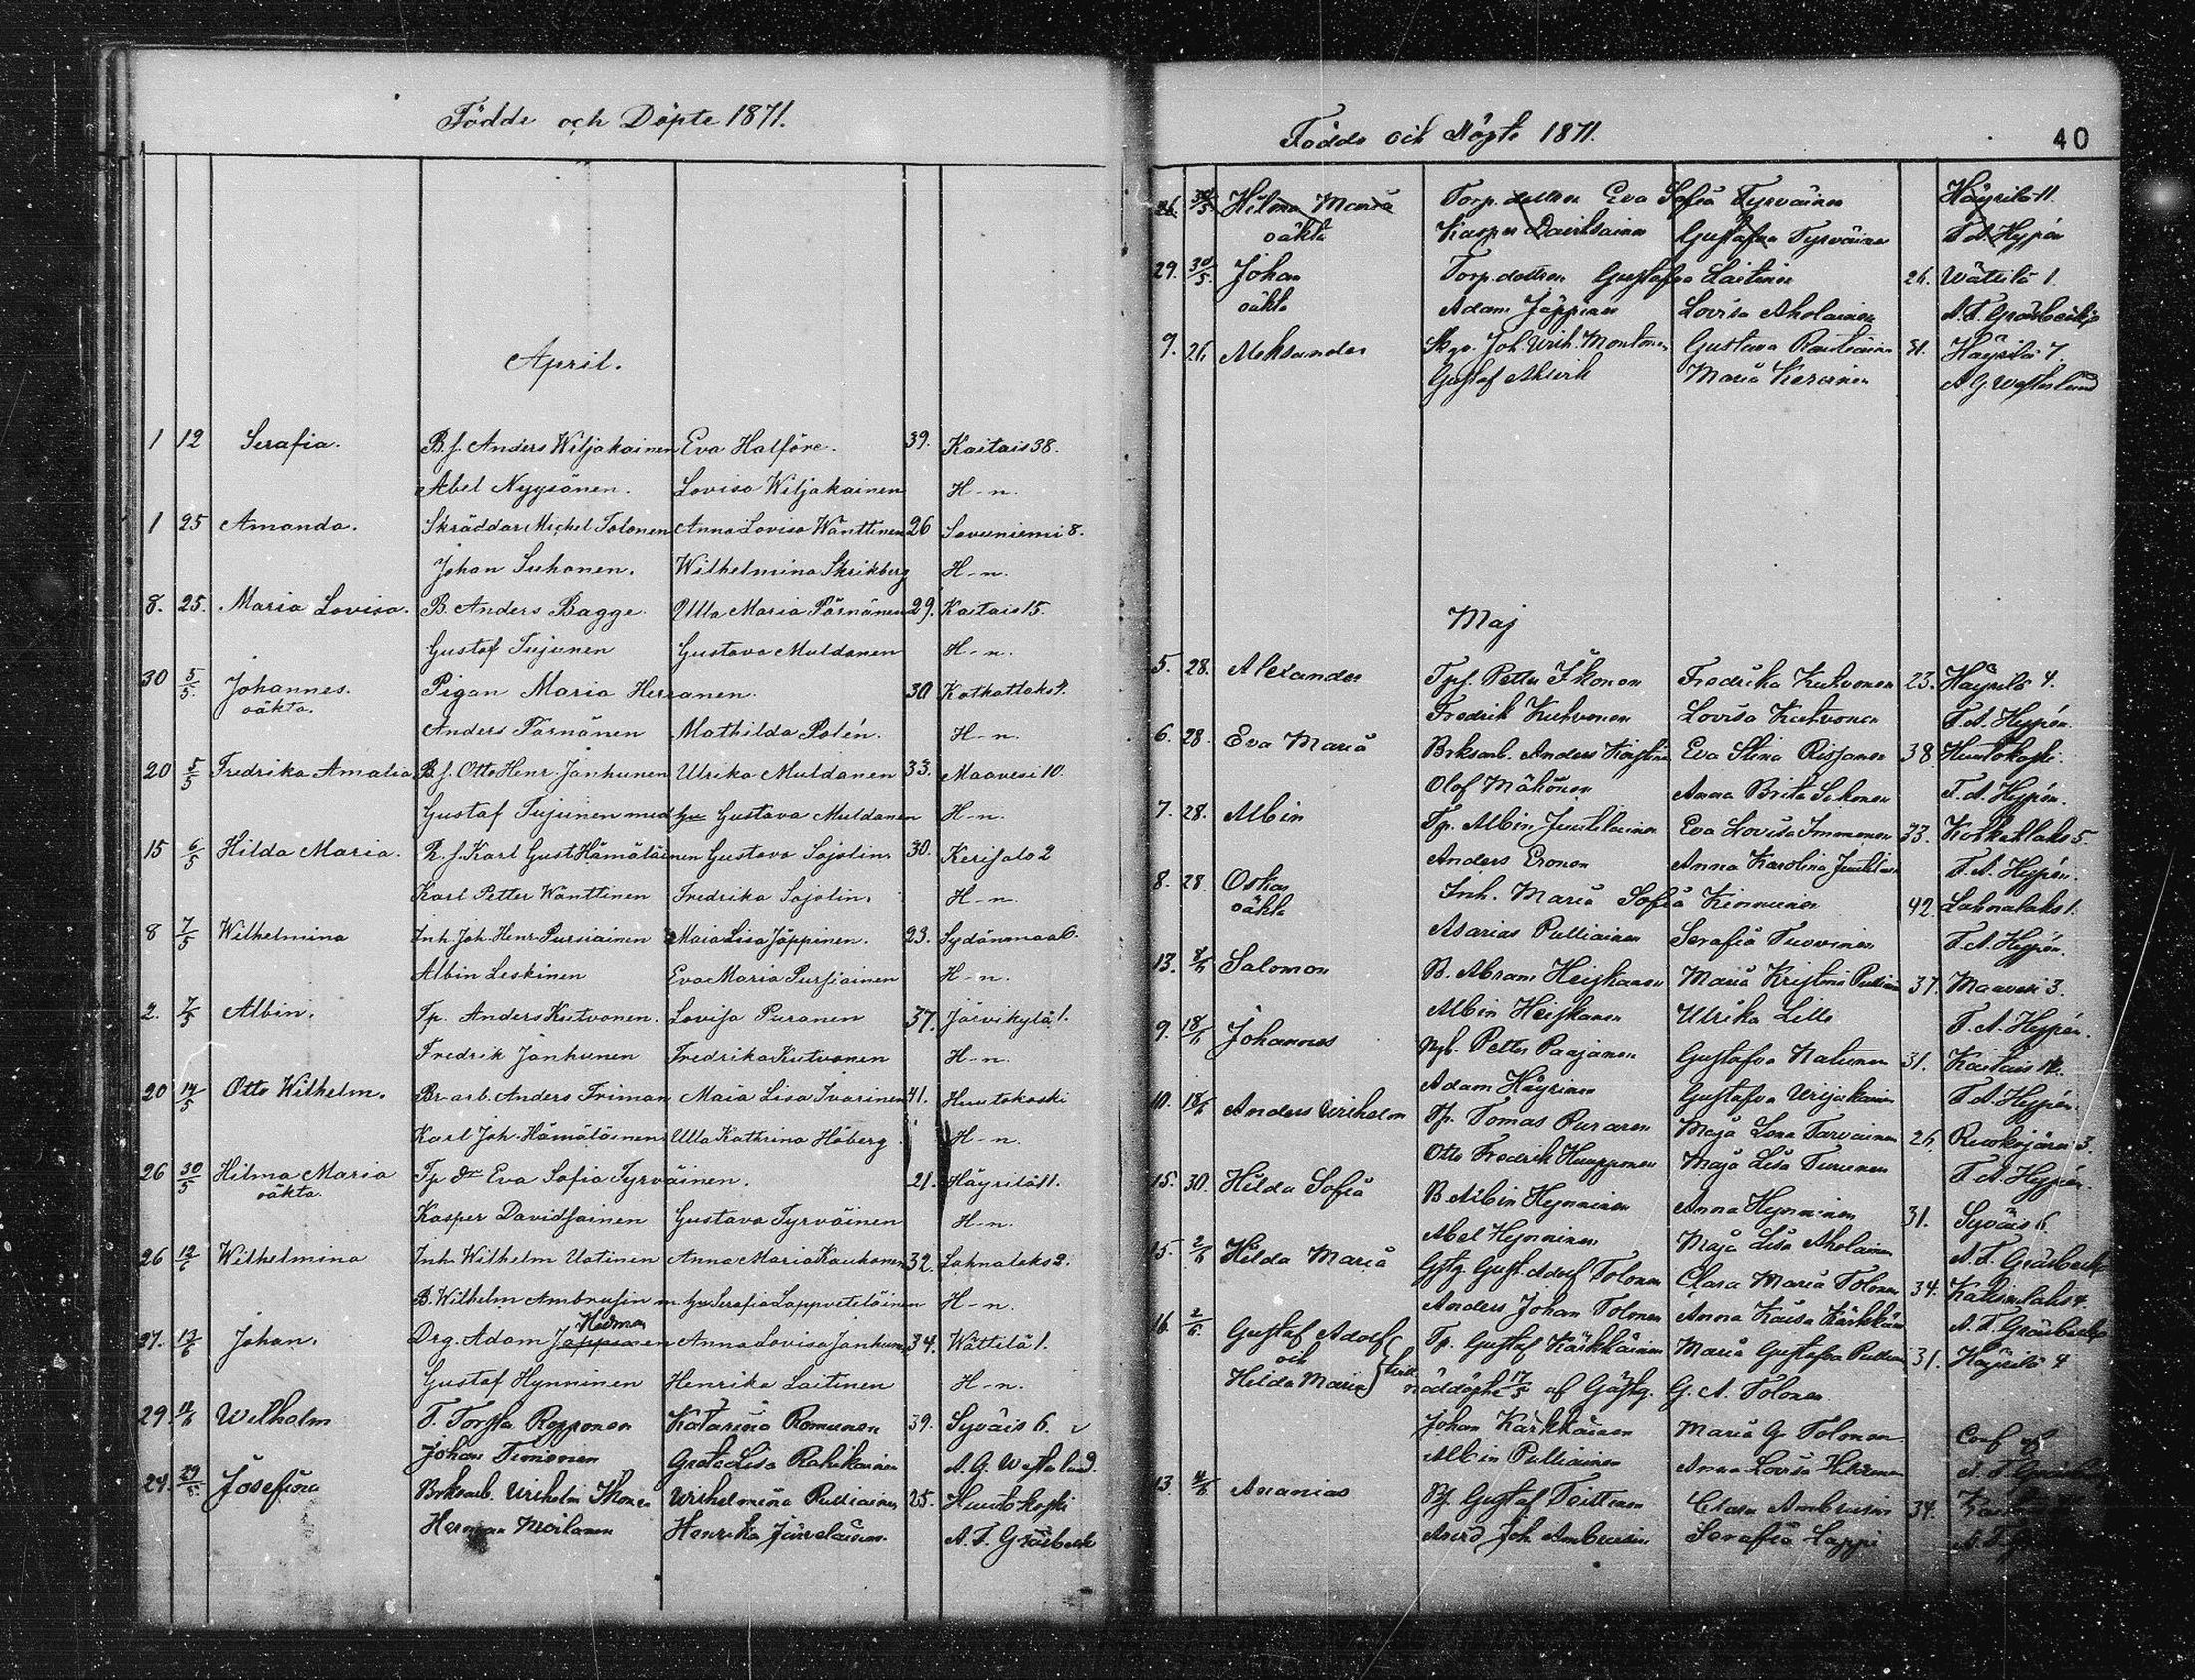 Födde och Döpte 1871.
April.
1 12 Serafia. B.f. Anders Wiljakainen Eva Halföre. 39. Kaitais 38.
Abel Nyysönen. Lovisa Wiljakainen H-n.
1 25 Amanda. Skräddar Michel Tolonen Anna Lovisa Wänttinen 26 Savuniemi 8.
Johan Suhonen. Wilhelmina Skrikberg H-n.
8. 25. Maria Lovisa. B. Anders Bagge. Ulla Maria Pärnänen 29. Kaitais 15.
Gustaf Tujunen Gustava Muldanen H-n.
30 5/5. Johannes. Pigan Maria Heranen. 30 Kotkatlaks 1.
oäkta.
Anders Pärnänen Mathilda Polén. H-n.
20 5/5 Fredrika Amalia B.f. Otto Henr. Janhunen Ulrika Muldanen 33. Maavesi 10.
Gustaf Tujunen med hu Gustava Muldanen H-n.
15 6/5 Hilda Maria. R.f. Karl Gust. Hämäläinen Gustava Sajolin. 30. Kerisalo 2
Karl Petter Wänttinen Fredrika Sajolin. H-n.
8 7/5 Wilhelmina Inh. Joh. Henr. Pursiainen Maia Lisa Jäppinen. 23. Sydänmaa 6.
Albin Leskinen Eva Maria Pursiainen H-n.
2. 7/5 Albin. Tp. Anders Kutvonen. Lovisa Puranen 37. Järvikylä 1.
Fredrik Janhunen Fredrika Kutvonen H-n.
20 14/5 Otto Wilhelm. Br-arb. Anders Friman Maia Lisa Ivarinen 41. Huutokoski
Karl Joh. Hämäläinen Ulla Kathrina Höberg H-n.
26 30/5 Hilma Maria Tp dr Eva Sofia Tyrväinen. 21. Häyrilä 11.
oäkta.
Kasper Davidsainen Gustava Tyrväinen H-n.
26 12/6 Wilhelmina Inh. Wilhelm Uotinen Anna Maria Kaukonen 32. Lahnalaks 2.
B. Wilhelm Ambrusin m. hu Serafia Lappveteläinen H-n.
Hidman
27. 12/6 Johan. Drg. Adam Jäppinen Anna Lovisa Janhunen 34. Wättilä 1.
Gustaf Hynninen Henrika Laitinen H-n.
29. 11/6 Wilhelm T. Torsta Repponen Katarina Romunen 39. Syväis 6.
Johan Timonen Greta Lisa Rahikainen A. G. Westerlund.
24. 29/5. Josefina Bruksarb. Wilhelm Ikonen Wilhelmina Pulliainen 25. Huutokoski
Herman Moilanen Henrika A. F. Gräsbeck
Födde och Döpte 1871.
40
26. 30/5. Hilma Maria Torp.dottren Eva Sofia Tyrväinen Häyrilä 11.
oäkta Kasper Davidsainen Gustafva Tyrväinen F. A. Hypén
29. 30/5. Johan Torp.dottren Gustafva Laitinen 26. Wättilä 1.
oäkta Adam Jäppinen Lovisa Aholainen A. F. Gräsbeck
9. 26. Aleksander Joh. Wilh. Montonen Gustava Rautiainen 31. Häyrilä 7.
Gustaf Maria Keränen A. G. Westerlund
Maj
5. 28. Alexander Tpf. Petter Ikonen Fredrika Kutvonen 23. Häyrilä 4.
Fredrik Kutvonen Lovisa Kutvonen F. A. Hypén.
6. 28. Eva Maria Bruksarb. Anders Eva Stina Risjanen 38. Huutokoski.
Olof Mähönen Anna Brita Sikonen F. A. Hypén.
7. 28. Albin Tp. Albin Juutilainen Eva Lovisa Immonen 33. Kotkatlaks 5.
Anders Eronen Anna Karolina Juutilainen F. A. Hypén.
8. 28. Oskar Inh. Maria Sofia Kinnunen 42. Lahnalaks 1.
oäkta
Asarias Pulliainen Serafia Tuovinen F. A. Hypén.
13. 8/6 Salomon B. Abram Heiskanen Maria Kristina Pulliainen 37. Maavesi 3.
Albin Heiskanen Ulrika Lille F. A. Hypén.
9. 18/6 Johannes Nyb. Petter Paajanen Gustafva Natunen 31. Kaitais 12.
Adam Häyrinen Gustafva Wiljakainen F. A. Hypén.
10. 18/6 Anders Wilhelm Tp. Tomas Puranen Maja Lena Tarvainen 26 Ruokojärvi 3.
Otto Fredrik Huupponen Maja Lisa Turunen F. A. Hypén.
15. 30. Hilda Sofia B. Albin Hynninen Anna Hynninen 31. Syväis 6
Abel Hynninen Maja Lisa Aholainen A. F. Gräsbeck
15. 2/6 Hilda Maria Gstg. Gust. Adolf Tolonen Clara Maria Tolonen 34. Katisenlaks 4.
Anders Johan Tolonen Anna Kaisa Kärkkäinen A. F. Gräsbeck
16. 2/6. Gustaf Adolf Tp. Gustaf Kärkkäinen Maria Gustafva Pulliainen 31. Häyrilä 4
och
Hilda Maria tvill. nöddöpte 17/5 af Gästg. G. A. Tolonen
Johan Kärkkäinen Maria G. Tolonen Conf. af
Albin Pulliainen Anna Lovisa Hildenen A. F.
13. 11/6 Ananias Bf. Gustaf Teittinen Clara Ambrusin 34.
Arvid Joh. Ambrusin Serafia Lappi A. F.